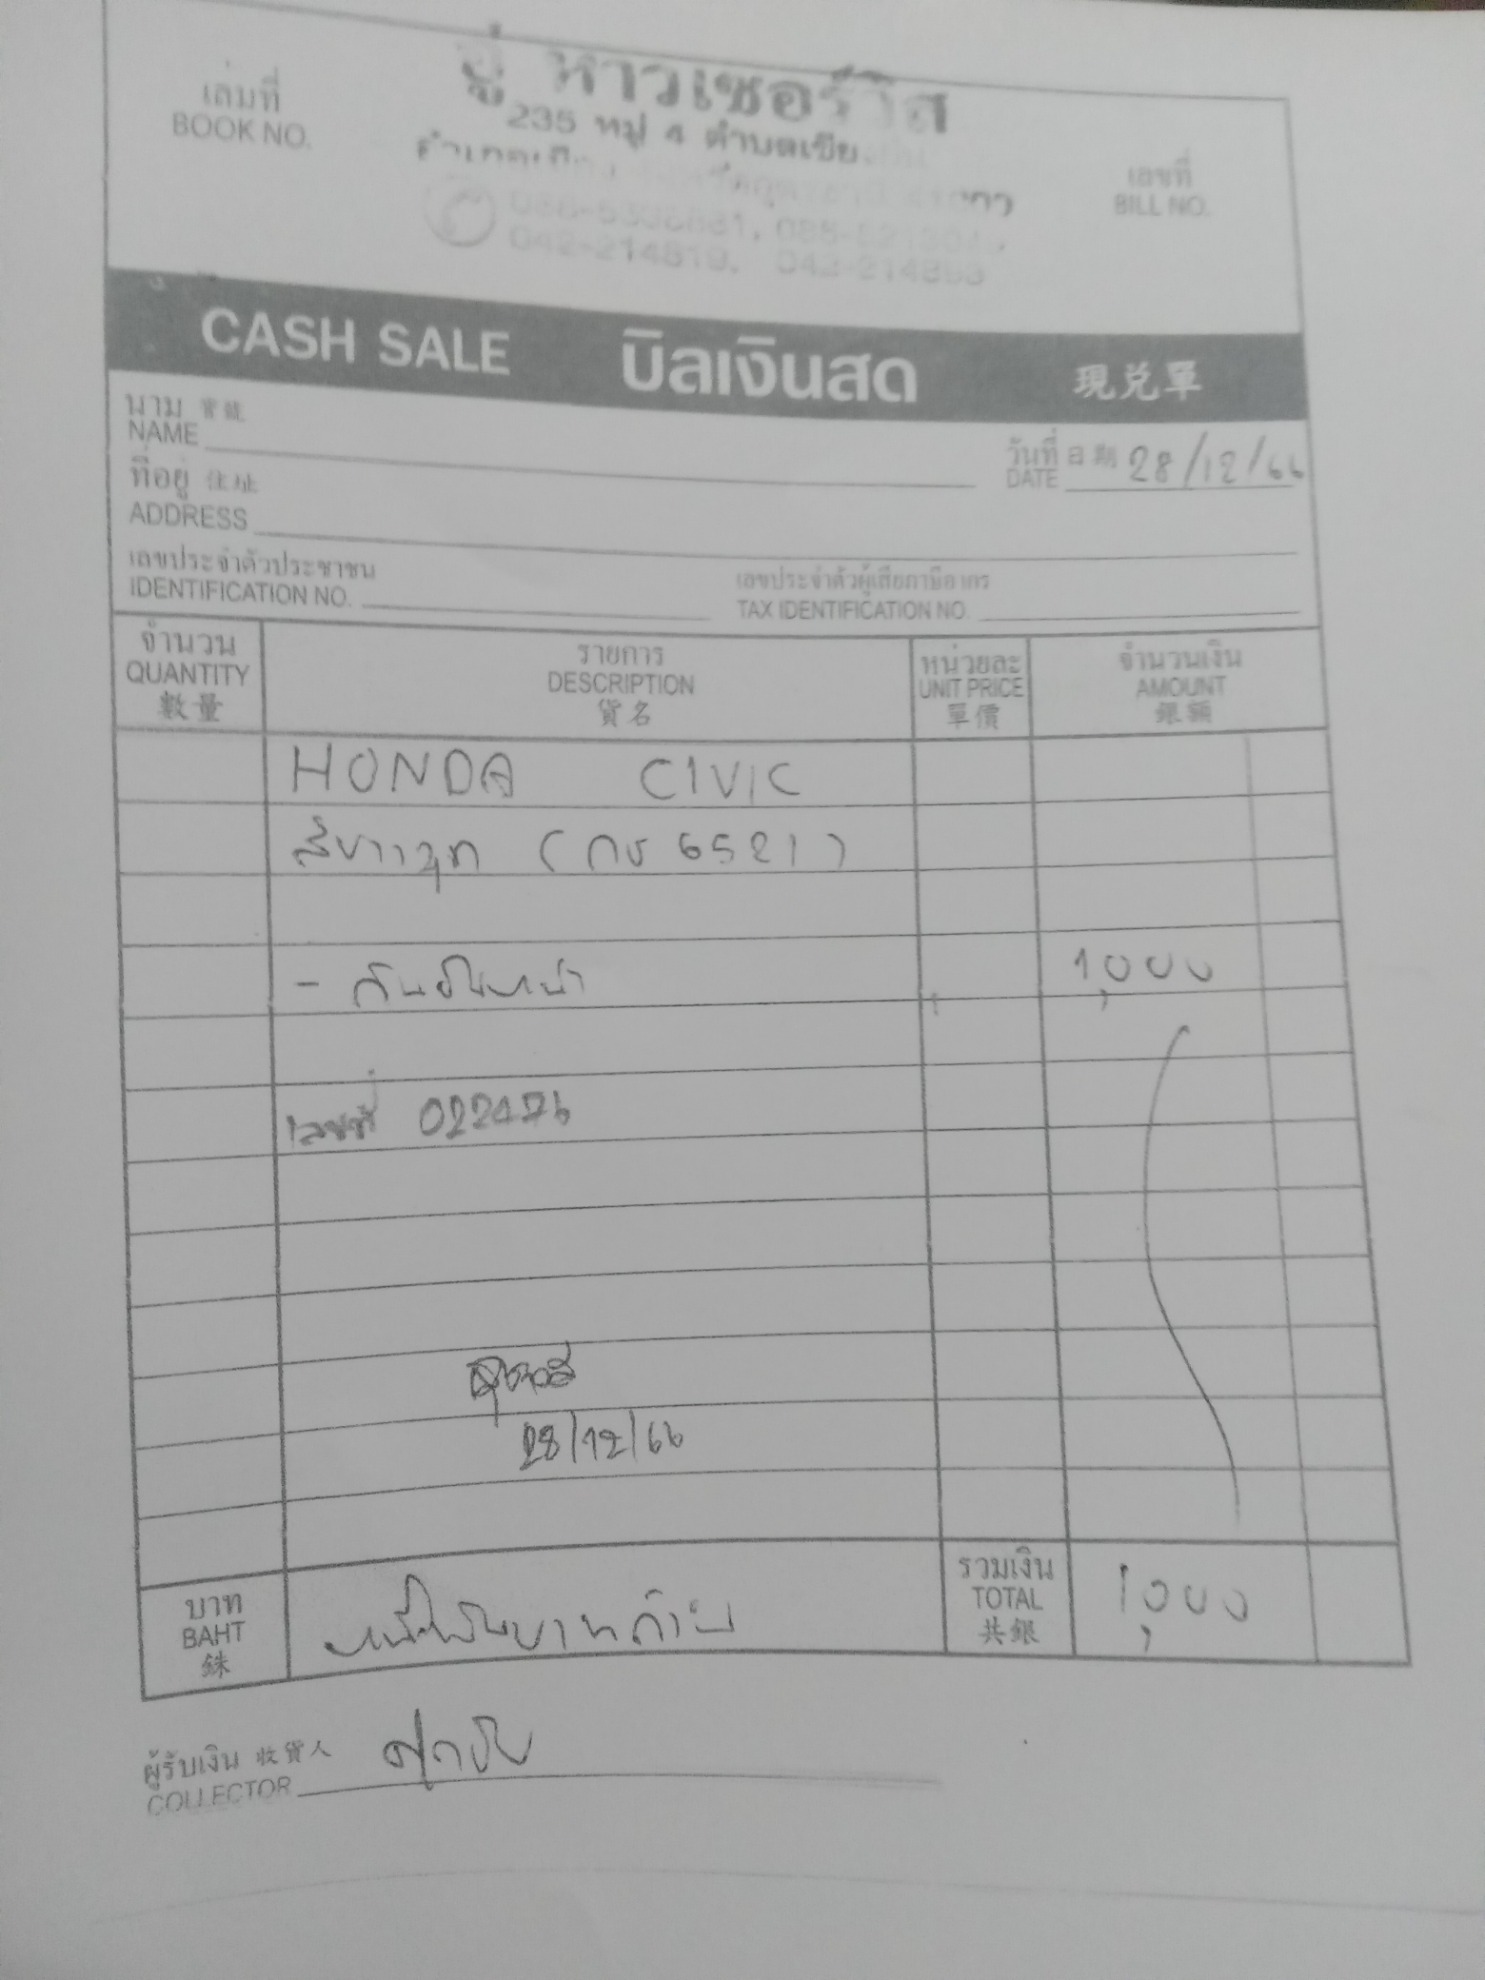 อู่ หาวเซอร์วิส
235 หมู่ 4 ตำบลเชีย
042-214819,
เล่มที่
BOOK NO.
เลขที่
BILL NO.
CASH SALE บิลเงินสด 現兌單
นาม 寶號
NAME
วันที่ 日期 28/12/66
DATE
ที่อยู่ 住址
ADDRESS
เลขประจำตัวประชาชน
IDENTIFICATION NO.
เลขประจำตัวผู้เสียภาษีอากร
TAX IDENTIFICATION NO.
จำนวน รายการ หน่วยละ จำนวนเงิน
QUANTITY DESCRIPTION UNIT PRICE AMOUNT
數量 貨名 單價 銀額
HONDA CIVIC
สีขาวมุก ( 6521 )
- กันชนหน้า 1,000
เลขที่ 022476
28/12/66
บาท
BAHT
銖
หนึ่งพันบาทถ้วน
รวมเงิน
TOTAL
共銀
1,000
ผู้รับเงิน 收貨人
COLLECTOR